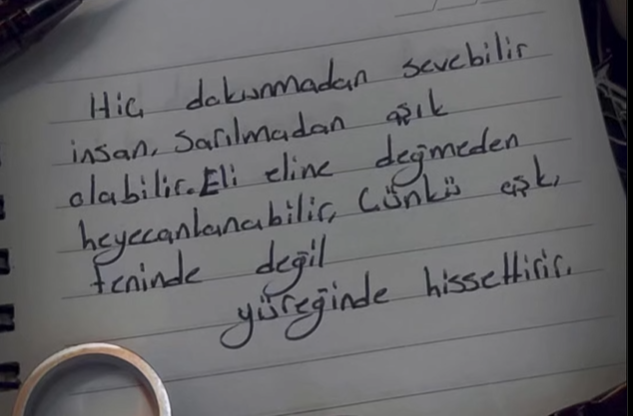 Hiç dokunmadan sevebilir
insan, sarılmadan aşık
olabilir. Eli eline değmeden
heyecanlanabilir, Çünkü aşk,
teninde değil
yüreğinde hissettirir.